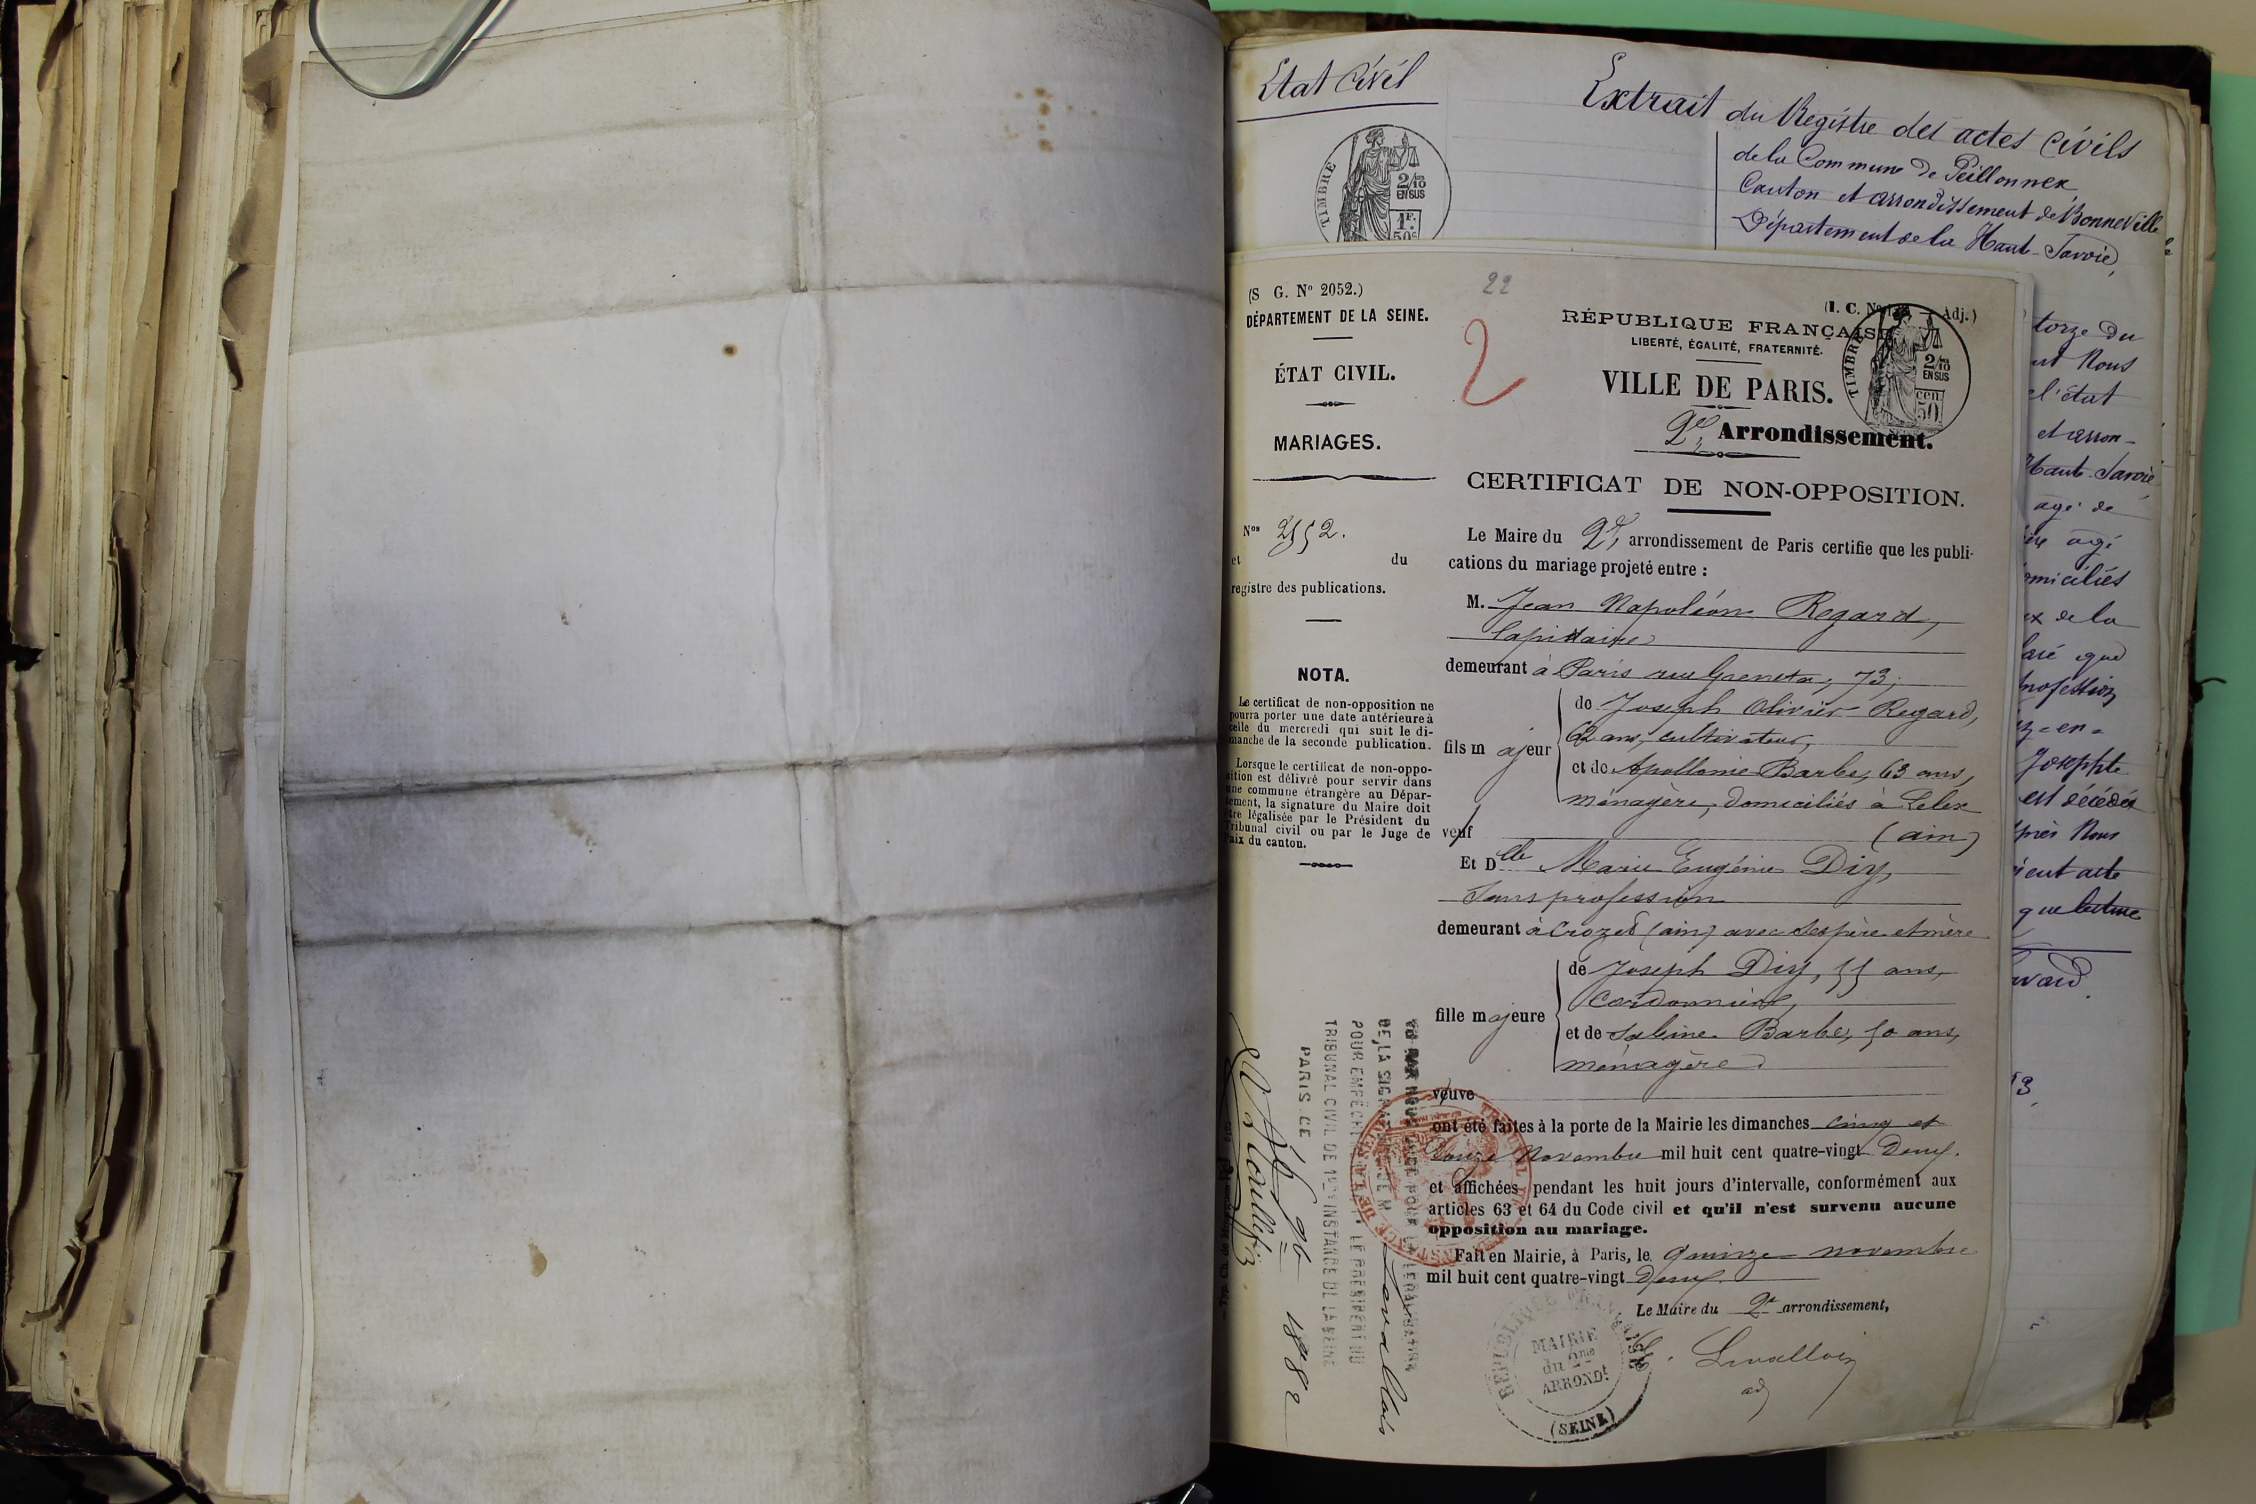 Etat Civil
Extrait du Registre des actes Civils
de la Commune de Peillonnex
Canton et arrondissement de Bonneville
Département de la Haute-Savoie,
TIMBRE
2/10
EN SUS
1F.
50c
torze du
Nous
l'état
et arron-
Haute-Savoie
agé de
agé
omiciliés
ex de la
que
rofession
z=en=
Josephte
est décédée
près Nous
acte
que lecture
(S G. No 2052.)
DÉPARTEMENT DE LA SEINE.
ÉTAT CIVIL.
MARIAGES.
Nos 2552.
et du
registre des publications.
NOTA.
Le certificat de non-opposition ne
pourra porter une date antérieure à
celle du mercredi qui suit le di-
manche de la seconde publication.
Lorsque le certificat de non-oppo-
sition est délivré pour servir dans
une commune étrangère au Dépar-
tement, la signature du Maire doit
être légalisée par le Président du
Tribunal civil ou par le Juge de
Paix du canton.
22
2
(I. C. No Adj.)
RÉPUBLIQUE FRANÇAISE
LIBERTÉ, ÉGALITÉ, FRATERNITÉ.
VILLE DE PARIS.
TIMBRE
2/10
EN SUS
cen.
50
2e, Arrondissement.
CERTIFICAT DE NON-OPPOSITION.
Le Maire du 2e, arrondissement de Paris certifie que les publi-
cations du mariage projeté entre :
M. Jean Napoléon Regard,
lapidaire
demeurant à Paris rue Greneta, 73,
fils majeur
de Joseph Olivier Regard,
62 ans, cultivateur,
et de Apollonie Barbe, 63 ans,
ménagère, domiciliés à Lelex
veuf (ain)
Et Dlle Marie Eugénie Diy,
Sans profession
demeurant à Crozet (ain) avec ses père et mère
fille majeure
de Joseph Diy, 55 ans,
Cordonnier,
et de Sabine Barbe, 50 ans,
ménagère
veuve
ont été faites à la porte de la Mairie les dimanches cinq et
Douze Novembre mil huit cent quatre-vingt Deux.
et affichées pendant les huit jours d'intervalle, conformément aux
articles 63 et 64 du Code civil et qu'il n'est survenu aucune
opposition au mariage.
Fait en Mairie, à Paris, le quinze novembre
mil huit cent quatre-vingt Deux.
Le Maire du 2e arrondissement,
Levallois
adj
RÉPUBLIQUE FRANÇAISE
MAIRIE
du 2me
ARRONDt
(SEINE)
VU PAR NOUS POUR LÉGALISATION
DE LA SIGNATURE DE M Levallois
POUR EMPÊCHEMENT LE PRÉSIDENT DU
TRIBUNAL CIVIL DE 1re INSTANCE DE LA SEINE
PARIS LE 16 9b 1882